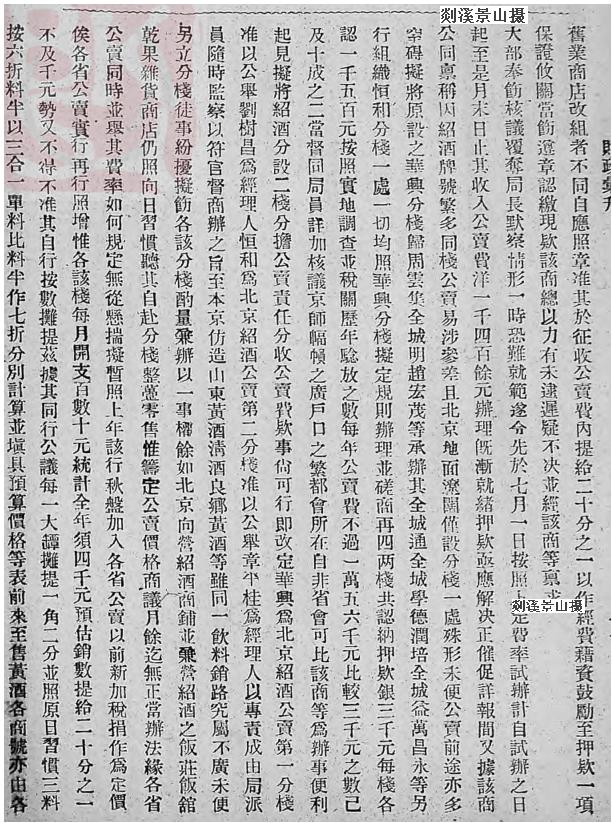 剡溪景山摄
舊業商店改組者不同自應照章准其於征收公賣費內提給二十分之一以作經費藉資鼓勵至押欵一項
保證攸關當飭遵章認繳現欵該商總以力有未逮遲疑不決並經該商等稟求
大部奉飭核議覆奪局長默察情形一時恐難就範遂令先於七月一日按照定費率試辦計自試辦之日
起至是月末日止其收入公賣費洋一千四百餘元辦理旣漸就緒押欵亟應解決正催促詳報間又據該商
公同稟稱因紹酒牌號繁多同棧公賣易涉參差且北京地面遼闊僅設分棧一處殊形未便公賣前途亦多
窒碍擬將原設之華興分棧歸周雲集全城明趙宏茂等承辦其全城通全城學德潤培全城益萬昌永等另
行組織恒和分棧一處一切均照華興分棧擬定規則辦理並磋商再四兩棧共認納押欵銀三千元每棧各
認一千五百元按照實地調查並稅關歷年騐放之數每年公賣費不過一萬五六千元比較三千元之數已
及十成之二當督同局員詳加核議京師幅幀之廣戶口之繁都會所在自非省會可比該商等爲辦事便利
起見擬將紹酒分設二棧分擔公賣責任分收公賣費欵事尙可行即改定華興爲北京紹酒公賣第一分棧
准以公舉劉樹昌爲經理人恒和爲北京紹酒公賣第二分棧准以公舉章平桂爲經理人以專責成由局派
員隨時監察以符官督商辦之旨至本京仿造山東黃酒淸酒良鄉黃酒等雖同一飮料銷路究屬不廣未便
另立分棧徒事紛擾擬飭各該分棧酌量兼辦以一事權餘如北京向營紹酒商鋪並兼營紹酒之飯莊飯舘
乾果雜貨商店仍照向日習慣聽其自赴分棧整躉零售惟籌定公賣價格商議月餘迄無正當辦法緣各省
公賣同時並舉其費率如何規定無從懸揣擬暫照上年該行秋盤加入各省公賣以前新加稅捐作爲定價
俟各省公賣實行再行照增惟各該棧每月開支百數十元統計全年須四千元預估銷數提給二十分之一
不及千元勢又不得不准其自行按數攤提茲據其同行公議每一大罈攤提一角二分並照原日習慣三料
按六折料半以三合一單料比料半作七折分別計算並塡具預算價格等表前來至售黃酒各商號亦由各
剡溪景山摄